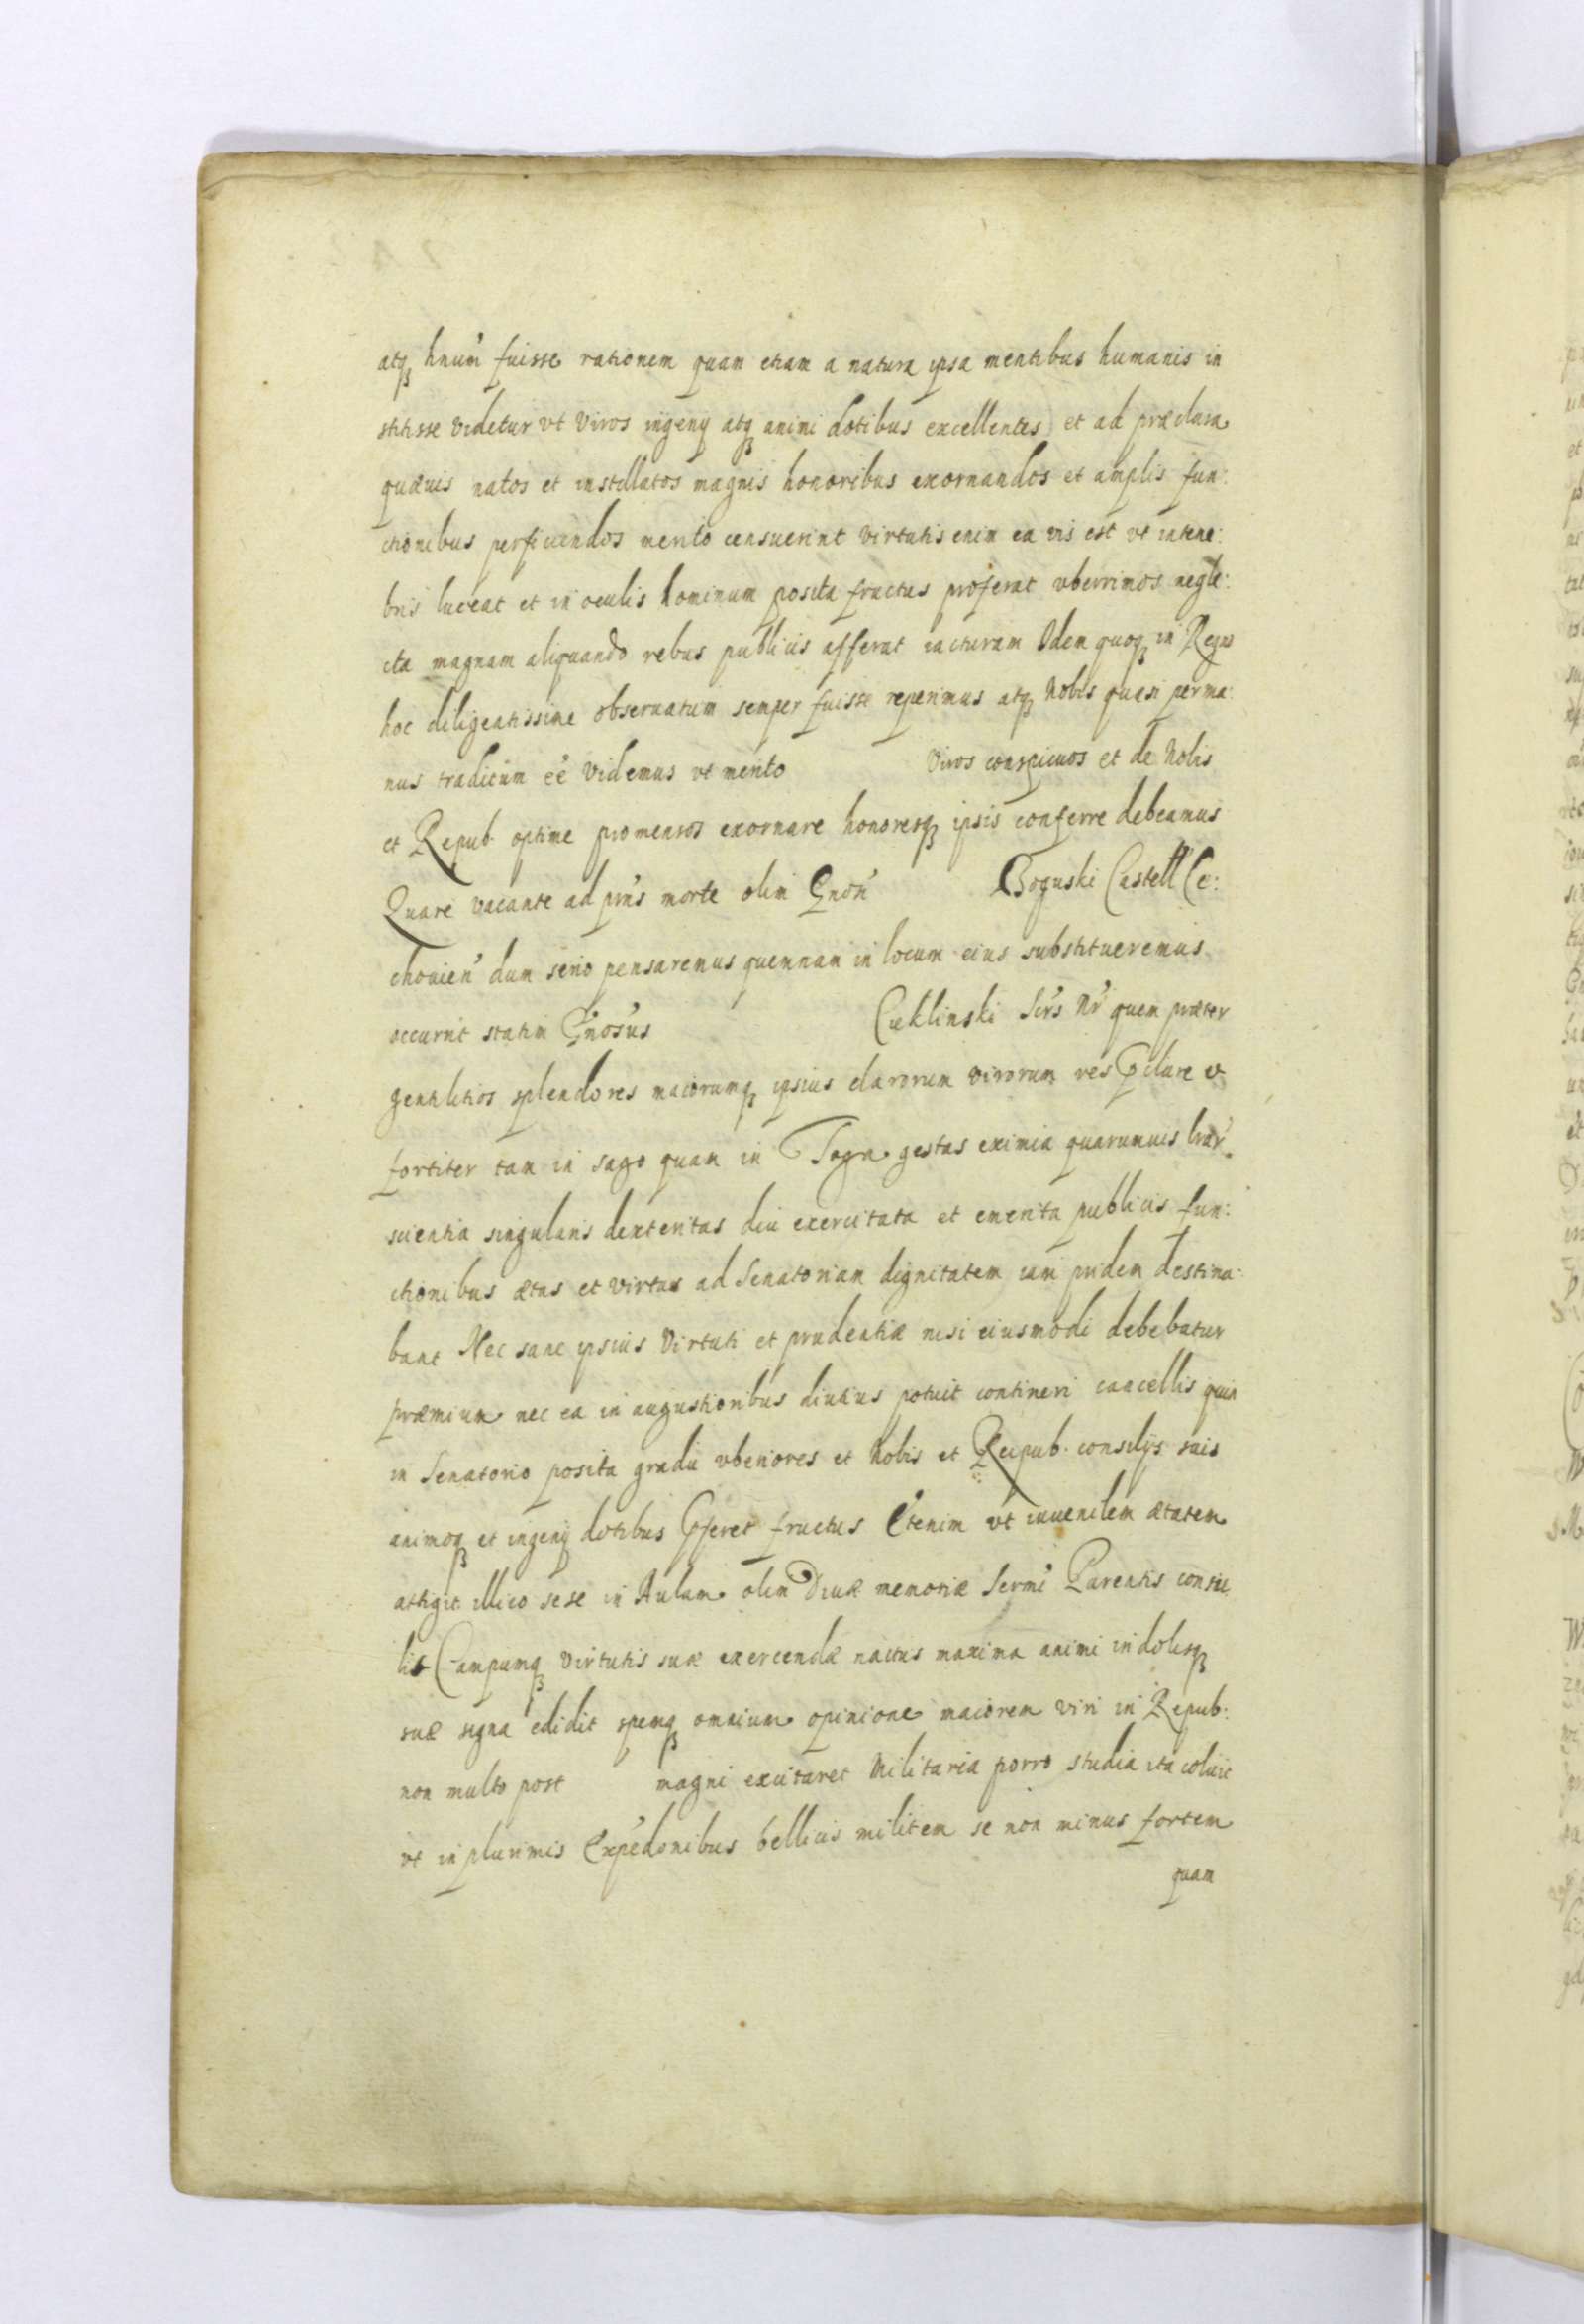 atq hnum̃ fuisse rationem quam etiam a natura ipsa mentibus humanis in
stitisse videtur vt viros ingenij atq animi dotibus excellentes et ad præclara
quæuis natos et instillatos magnis honoribus exornandos et amplis fun:
ctionibus perficiendos merito censuerint virtutis enim ea vis est vt in tene:
bris luceat et in oculis hominum posita fructus proferat vberrimos negle:
cta magnam aliquando rebus publicis afferat iacturam Idem quoq in Regno
hoc diligentissime obseruatum semper fuisse reperimus atq Nobis quasi per ma:
nus traditum eẽ videmus vt merito viros conspicuos et de Nobis
et Repub optime promeritos exornare honoresq ipsis conferre debeamus
Quare vacante ad prñs morte olim Gnoñ Boguski Castell Ce:
chouien̄ dum serio pensaremus quemnam in locum eius substitueremus
occurrit statim Gñosus Cieklinski Scr̃s Nr̃ quem præter
gentilitios splendores maiorumq ipsius clarorum virorum res pclare et
fortiter tam in sago quam in Toga gestas eximia quarumuis lrar̃
scientia singularis dexteritas diu exercitata et emerita publicis fun:
ctionibus ætas et virtus ad Senatoriam dignitatem iam pridem destina:
bant Nec sane ipsius Virtuti et prudentiæ nisi eiusmodi debebatur
præmium nec ea in angustioribus diutius potuit contineri cancellis quin
in Senatorio posita gradu vberiores et Nobis et Reipub. consilijs suis
animoq et ingenij dotibus pferet fructus Etenim vt iuuenilem ætatem
attigit illico sese in Aulam olim Diuæ memoriæ Sermĩ Parentis contu
lit Campumq virtutis suæ exercendæ nactus maxima animi indolisq
suæ signa edidit spemq omnium opinione maiorem viri in Repub:
non multo post magni excitaret Militaria porro studia ita coluit
vt in plurimis Expedonibus bellicis militem se non minus fortem
quam